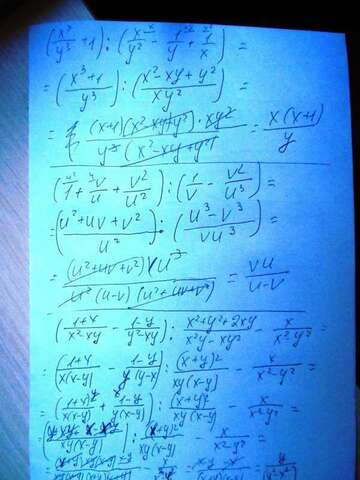 (x³/y³ + 1) : (x/y² - 1/y + 1/x) =
= (x³+1/y³) : (x²-xy+y²/xy²) =
= (x+1)(x²-xy+y²)·xy²/y³(x²-xy+y²) = x(x+1)/y
(1 + v/u + v²/u²) : (1/v - v²/u³) =
= (u²+uv+v²/u²) : (u³-v³/vu³) =
= (u²+uv+v²)vu³/u²(u-v)(u²+uv+v²) = vu/u-v
(1+x/x²-xy - 1-y/y²-xy) : x²+y²+2xy/x²y-xy² - x/x²-y² =
= (1+x/x(x-y) - 1-y/y(y-x)) : (x+y)²/xy(x-y) - x/x²-y² =
= (1+x/x(x-y) + 1-y/y(x-y)) : (x+y)²/xy(x-y) - x/x²-y² =